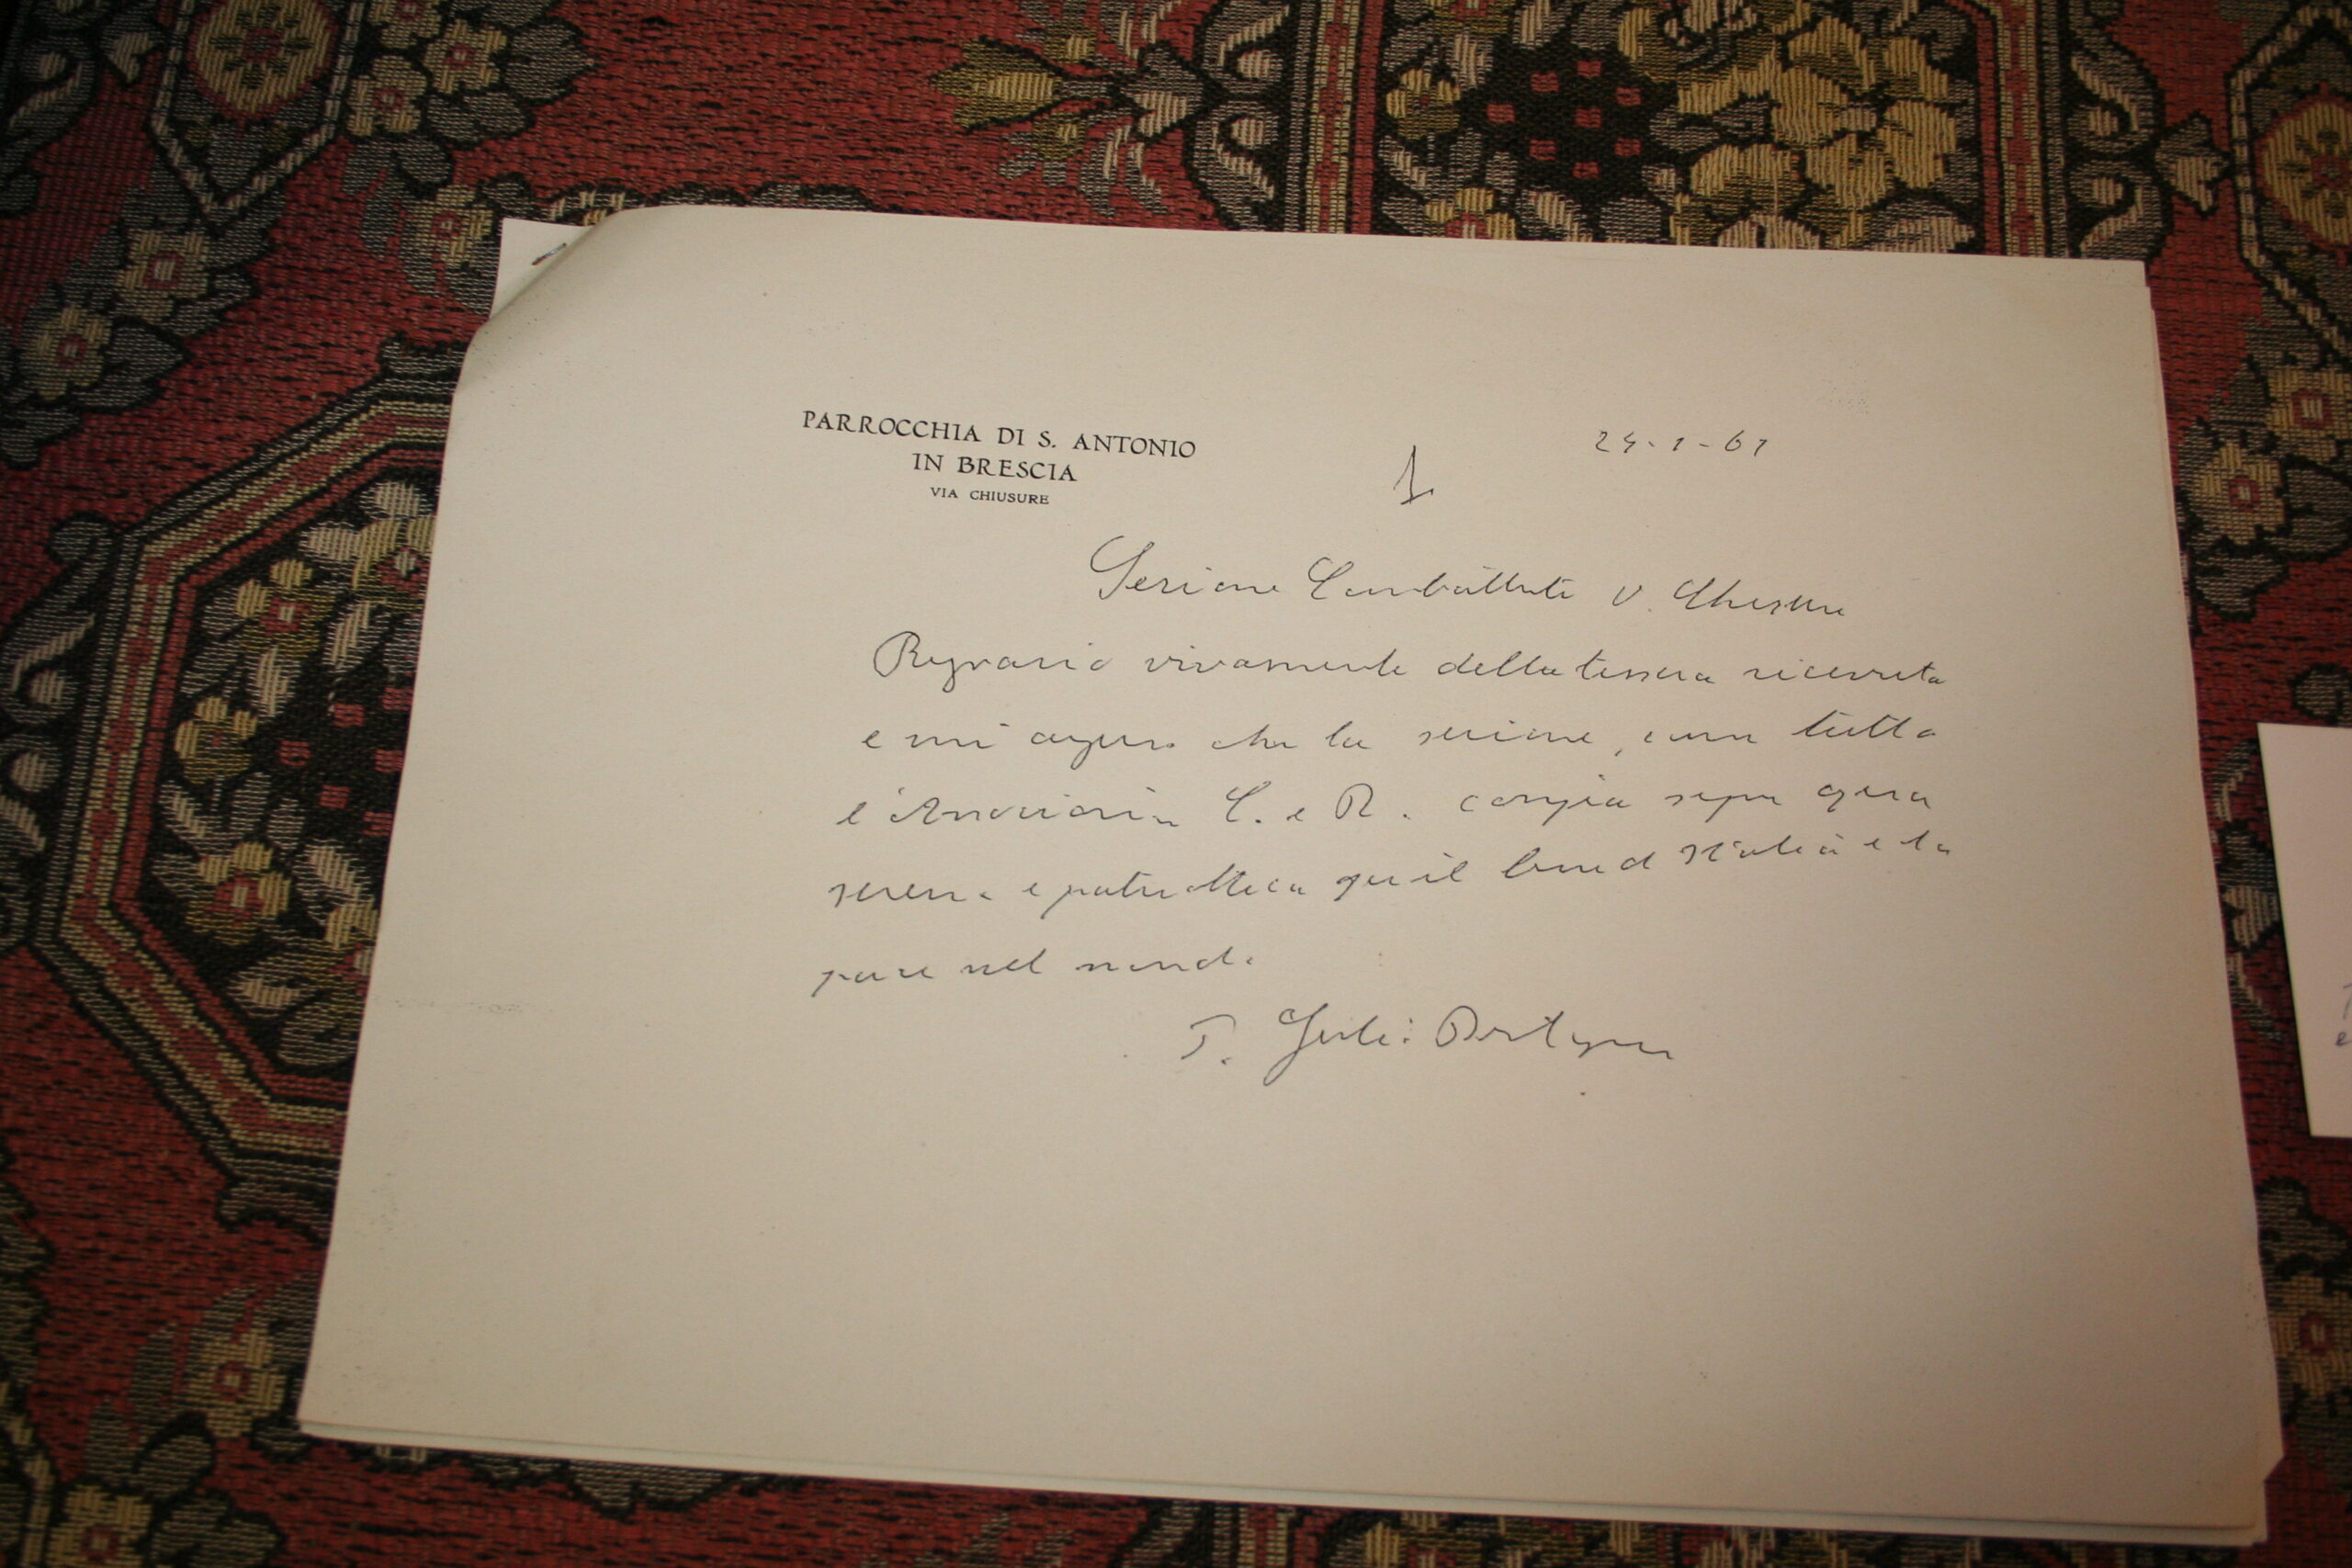 PARROCCHIA DI S. ANTONIO
IN BRESCIA
VIA CHIUSURE
24-1-61
Sezione Combattenti V. Chiusure
Ringrazio vivamente della tessera ricevuta
e mi auguro che la sezione, come tutta
l'Associazione C. e R. compia sempre opera
serena e patriottica per il bene d'Italia e la
pace nel mondo
P. Giulio